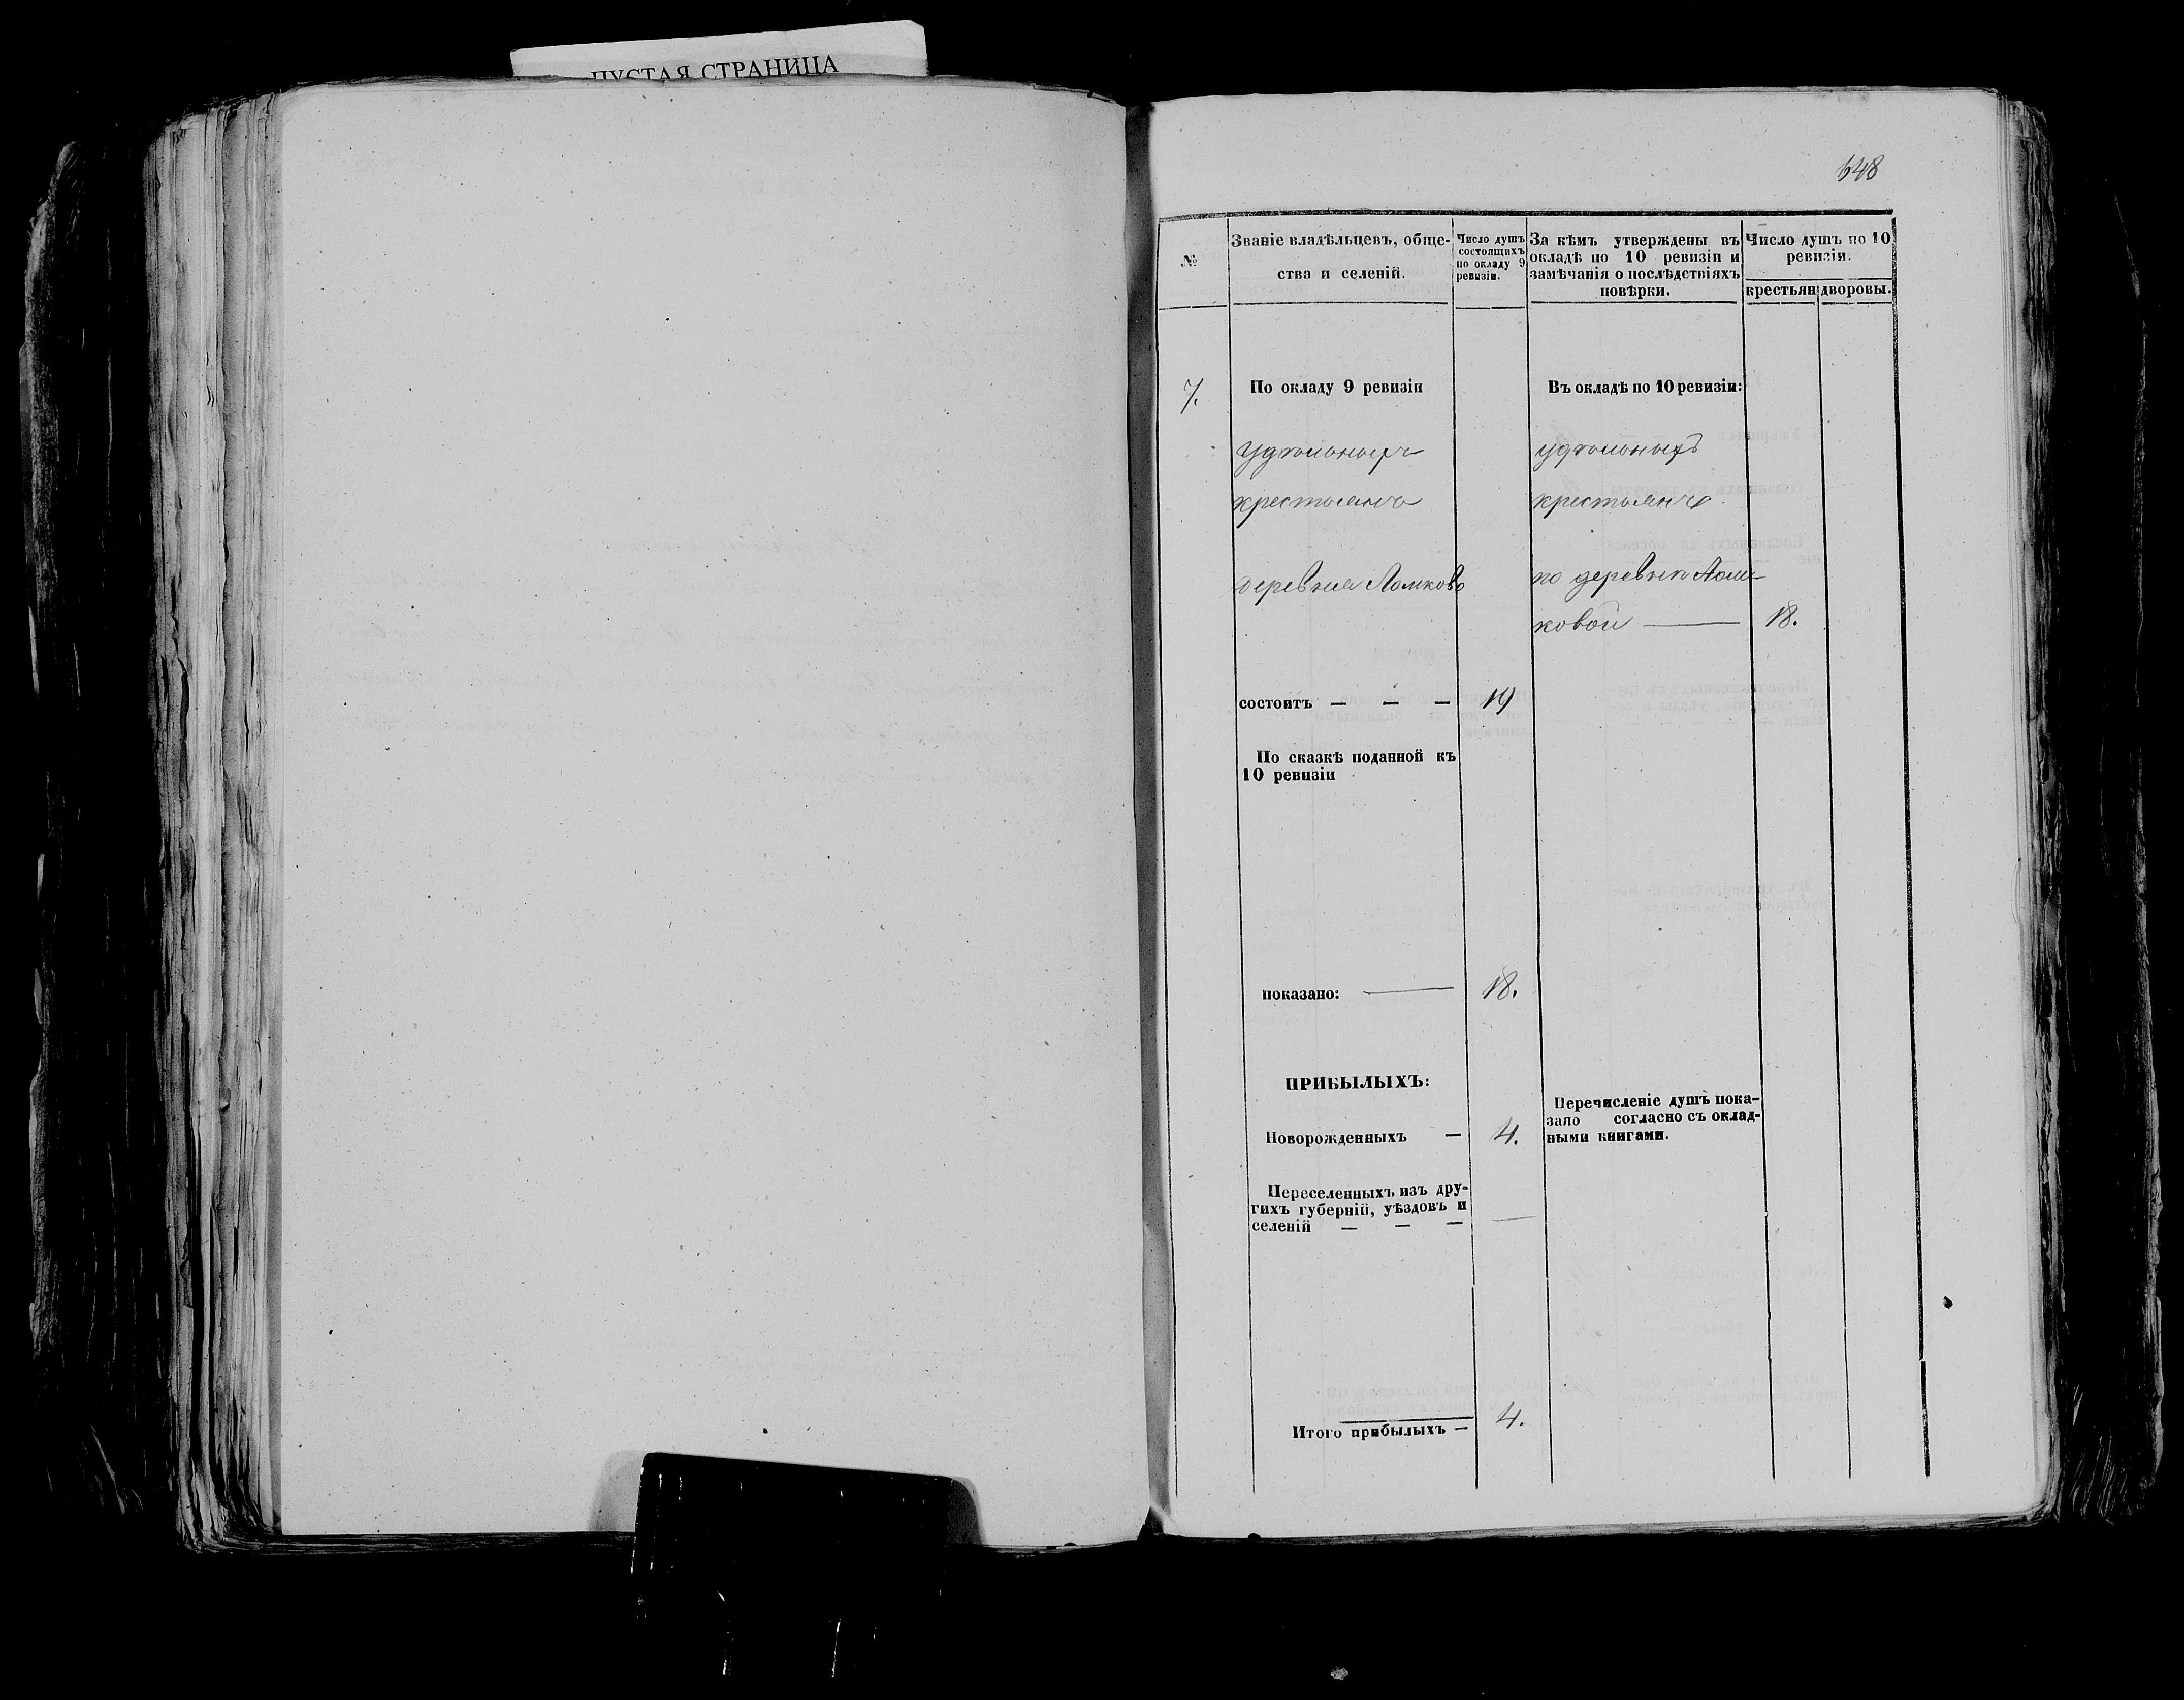 ПУСТАЯ СТРАНИЦА
648
№
Званіе владѣльцевъ, обще-
ства и селеній.
Число душъ
состоящихъ
по окладу 9
ревизіи.
За кѣмъ утверждены въ
окладѣ по 10 ревизіи и
замѣчанія о послѣдствіяхъ
повѣрки.
Число душъ по 10
ревизіи.
крестьян
дворовы.
7.
По окладу 9 ревизіи
удѣльныхъ
крестьянъ
деревня Ломково
состоитъ — — — 19
По сказкѣ поданной къ
10 ревизіи
показано: — 18.
ПРИБЫЛЫХЪ:
Новорожденныхъ — 4.
Переселенныхъ изъ дру-
гихъ губерній, уѣздовъ и
селеній — — — —
Итого прибылыхъ — 4.
Въ окладѣ по 10 ревизіи:
удѣльныхъ
крестьянъ
по деревнѣ Лом-
ковой — 18.
Перечисленіе душъ пока-
зано согласно съ оклад-
ными книгами.